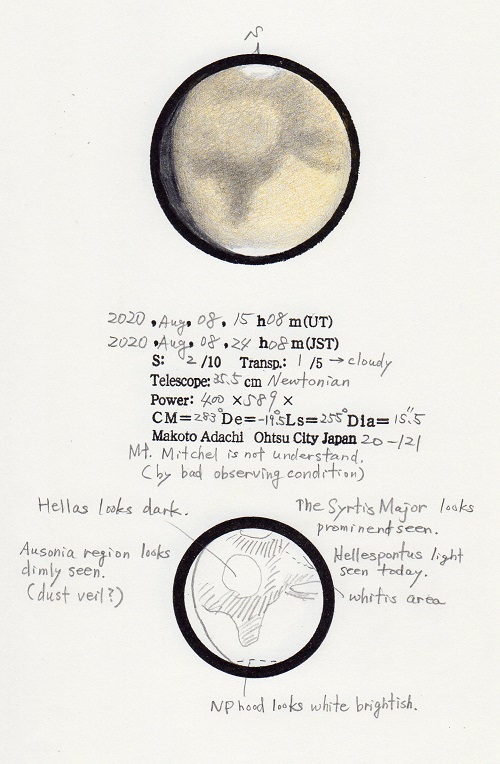 N
2020, Aug, 08, 15 h 08 m (UT)
2020, Aug, 08, 24 h 08 m (JST)
S: 2 /10 Transp.: 1 /5 → cloudy
Telescope: 35.5 cm Newtonian
Power: 400 × 589 ×
CM= 283° De= -19.5° Ls= 255° Dia= 15".5
Makoto Adachi Ohtsu City Japan 20-121
Mt. Mitchel is not understand.
(by bad observing condition)
Hellas looks dark.
Ausonia region looks
dimly seen.
(dust veil?)
The Syrtis Major looks
prominent seen.
Hellespontus light
seen today.
whitis area
NP hood looks white brightish.